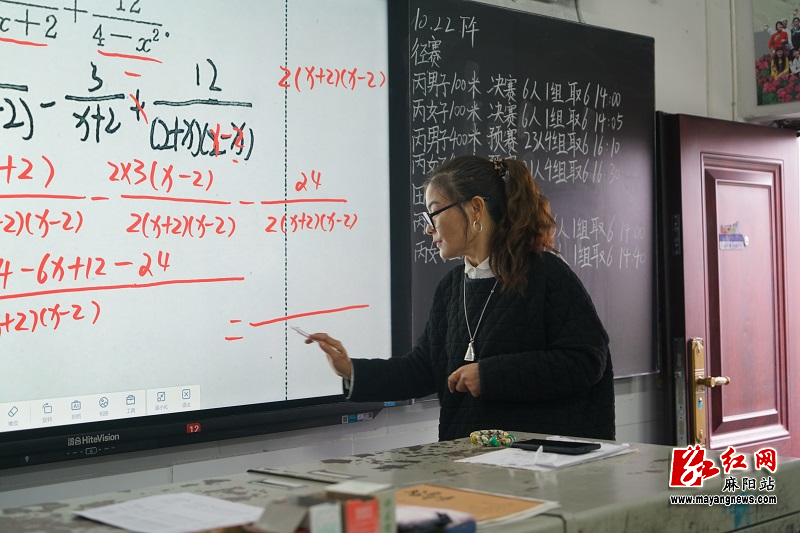 x+2 + 12/(4-x²).
-2) - 3/(x+2) + 12/((2+x)(2-x))
2(x+2)(x-2)
+2)/(x+2)(x-2) - 2×3(x-2)/2(x+2)(x-2) - 24/2(x+2)(x-2)
4-6x+12-24/+2)(x-2)
=
10.22 下午
径赛
丙男子100米 决赛 6人1组 取6 14:00
丙女子100米 决赛 6人1组 取6 14:05
丙男子400米 预赛 23人4组 取6 16:10
丙女 人4组 取6 16:30
丙 人1组 取6 14:00
丙女 人1组 取6 14:40
工具
最小化
退出
海信HiteVision
12
红网
麻阳站
www.mayangnews.cn